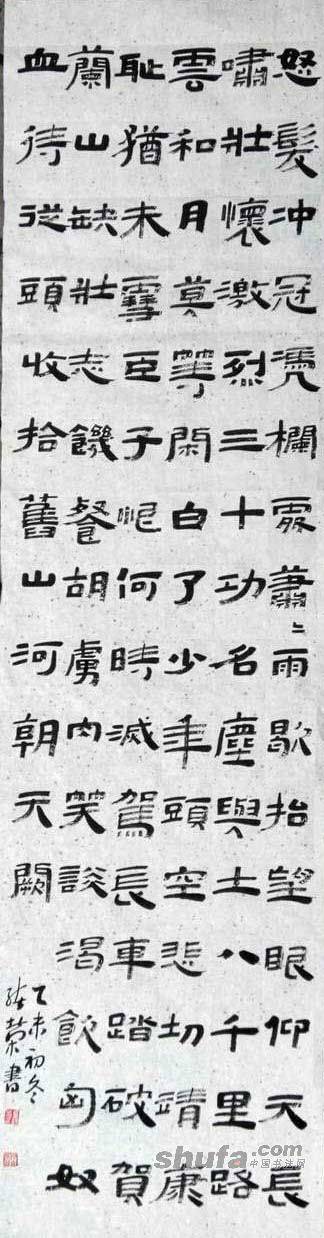 怒髮冲冠凴欄處蕭〻雨歇抬望眼仰天長
嘯壯懷激烈三十功名塵與土八千里路
雲和月莫等閑白了少年頭空悲切靖康
耻猶未雪臣子恨何時滅駕長車踏破賀
蘭山缺壯志饑餐胡虜肉笑談渴飲匈奴
血待從頭收拾舊山河朝天闕
乙未初冬
榮書
shufa.com
中国书法网